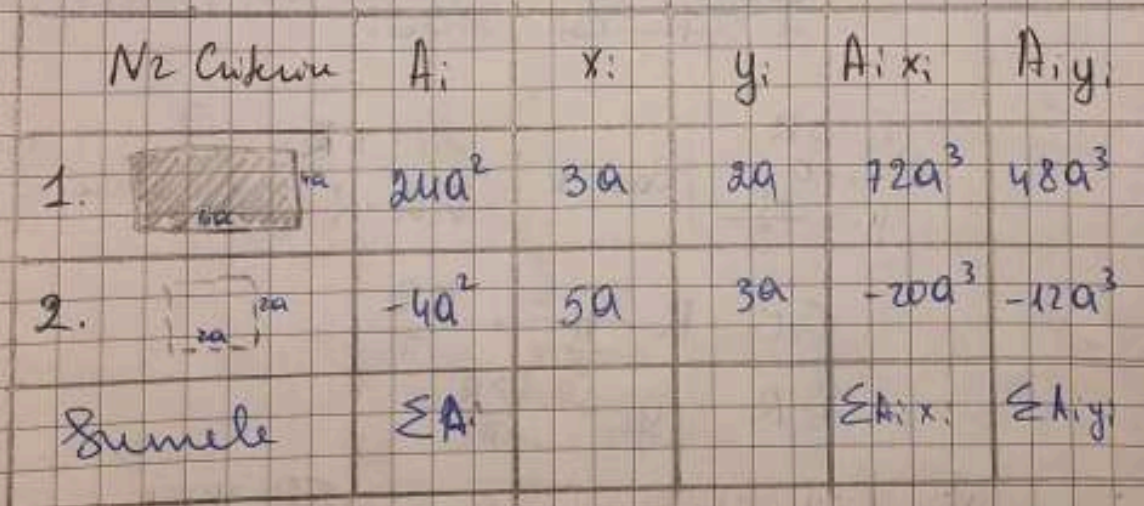 Nr Criteriu Ai xi yi Ai xi Ai yi
1. 4a 6a 24a² 3a 2a 72a³ 48a³
2. 2a 2a -4a² 5a 3a -20a³ -12a³
Sumele ΣAi ΣAi xi ΣAi yi